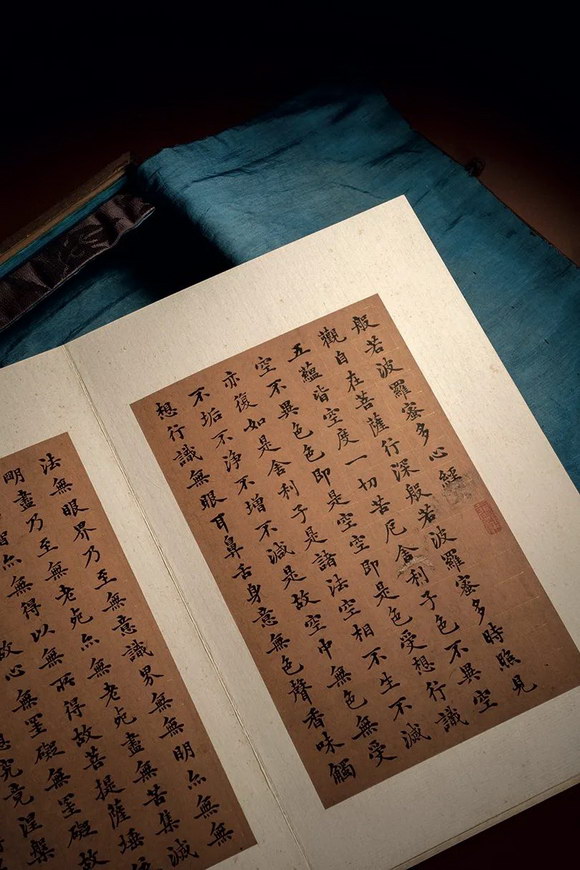 般若波羅蜜多心經
觀自在菩薩行深般若波羅蜜多時照見
五蘊皆空度一切苦厄舍利子色不異空
空不異色色即是空空即是色受想行識
亦復如是舍利子是諸法空相不生不滅
不垢不淨不增不減是故空中無色無受
想行識無眼耳鼻舌身意無色聲香味觸
法無眼界乃至無意識界無無明亦無無
明盡乃至無老死亦無老死盡無苦集滅
智亦無得以無所得故菩提薩埵依
故心無罣礙無罣礙故
想究竟涅槃